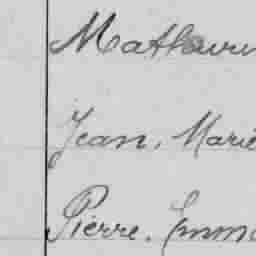 Mathurin
Jean, Marie
Pierre. Emma